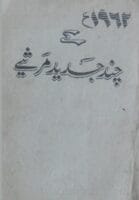 ۱۹۶۲ع
کے
چند جدید مرثیے